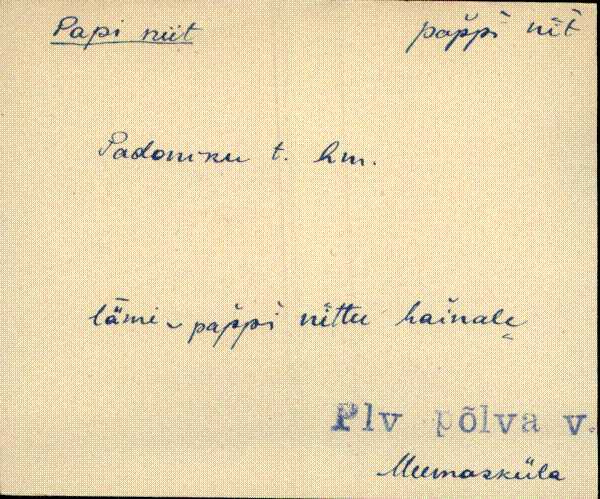 Papi niit pap̆pi nĭt̆
Padoniku t. hm.
lämi pap̆pi nĭttu hăinale
Plv põlva v.
Meemasküla